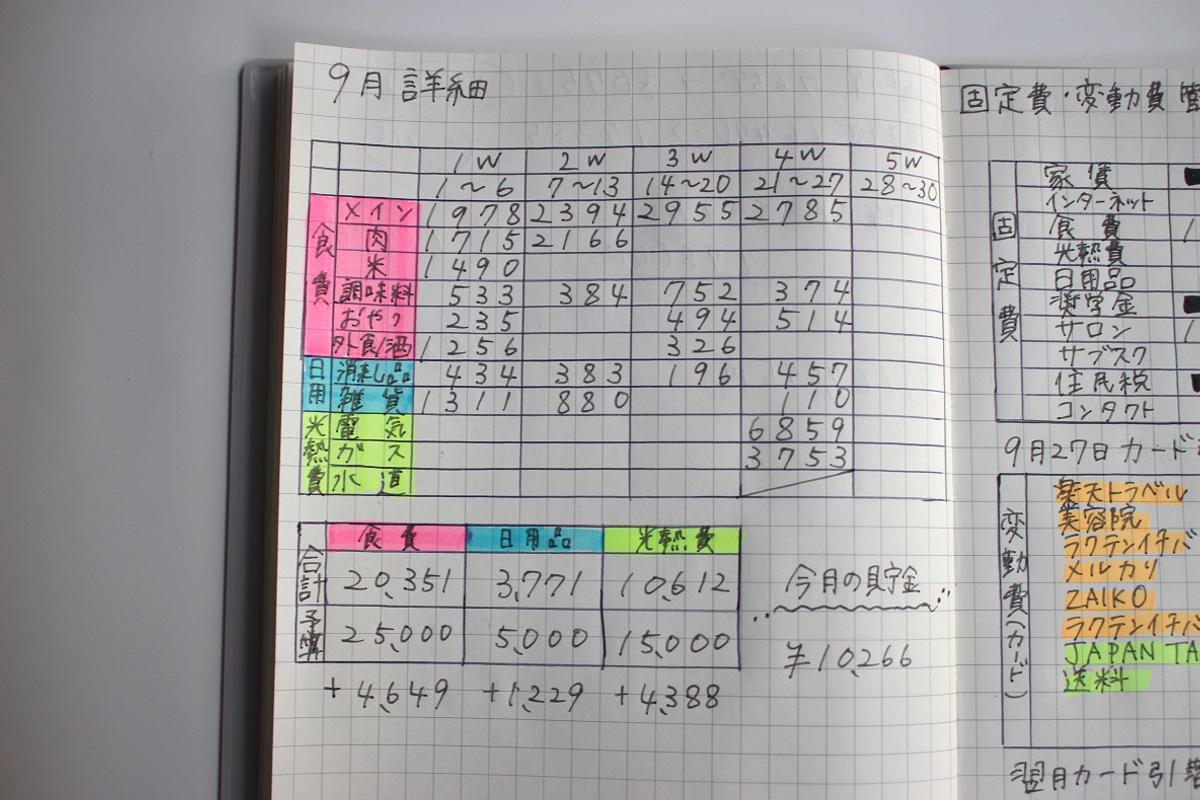 9月 詳細
1W 2W 3W 4W 5W
1〜6 7〜13 14〜20 21〜27 28〜30
食費
メイン 1978 2394 2955 2785
肉 1715 2166
米 1490
調味料 533 384 752 374
おやつ 235 494 514
外食/酒 1256 326
日用
消耗品 434 383 196 457
雑貨 1311 880 110
光熱費
電気 6859
ガス 3753
水道
食費 日用品 光熱費
合計 20,351 3,771 10,612
予算 25,000 5,000 15,000
+4,649 +1,229 +4,388
今月の貯金
¥10,266
固定費・変動費
固定費
家賃
インターネット
食費
光熱費
日用品
奨学金
サロン
サブスク
住民税
コンタクト
9月27日 カード
変動費(カード)
楽天トラベル
美容院
ラクテンイチバ
メルカリ
ZAIKO
ラクテンイチバ
JAPAN TA
送料
翌月カード引